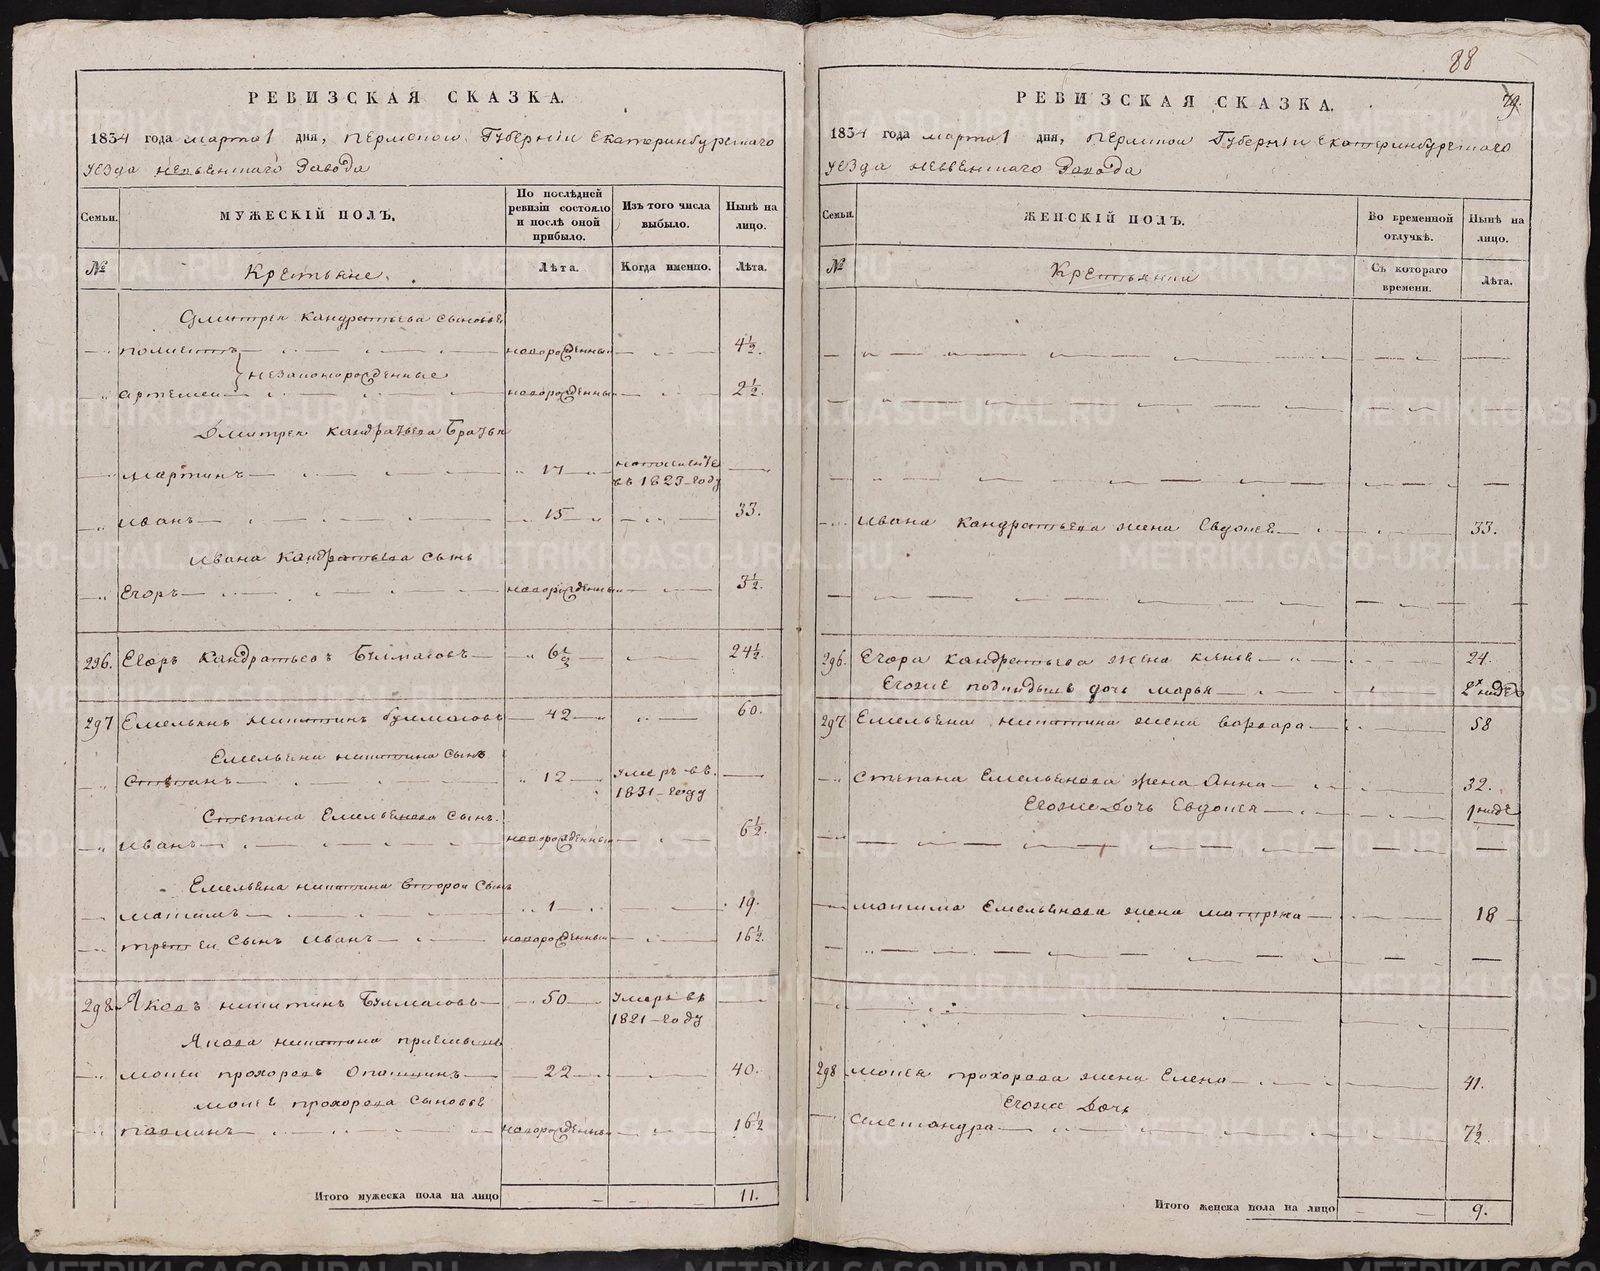 88
РЕВИЗСКАЯ СКАЗКА.
1834 года марта 1 дня, Пермской Губернiи Екатеринбургскаго
уѣзда Невьянскаго Завода
Семьи. МУЖЕСКIЙ ПОЛЪ. По послѣдней ревизiи состояло и послѣ оной прибыло. Изъ того числа выбыло. Нынѣ на лицо.
№ Крестьяне. Лѣта. Когда именно. Лѣта.
Дмитрея Кандратьева сыновья
новорожденный 4½.
незаконорожденные
Артемей новорожденный 2½.
Дмитрея Кандратьева Братья
Мартинъ 17
въ 1823 году
Иванъ 15 33.
Ивана Кандратьева сынъ
Егоръ новорожденный 3½.
296. Егоръ Кандратьевъ 24½.
297 Емельянъ Никитинъ 42 60.
Емельяна Никитина сынъ
Степанъ 12 умеръ въ
1831 году
Степана Емельянова сынъ
Иванъ новорожденный 6½.
Емельяна Никитина второй сынъ
Максимъ 1 19.
третей сынъ Иванъ новорожденный 16½.
298 Яковъ Никитинъ 50 умеръ въ
1821 году
Якова Никитина приемышъ
Мокей Прохоровъ 22 40.
Мокея Прохорова сыновья
Павлинъ новорожденный 16½
Итого мужеска пола на лицо 11.
79.
РЕВИЗСКАЯ СКАЗКА.
1834 года марта 1 дня, Пермской Губернiи Екатеринбургскаго
уѣзда Невьянскаго Завода
Семьи. ЖЕНСКIЙ ПОЛЪ. Во временной отлучкѣ. Нынѣ на лицо.
№ Крестьянки Съ котораго времени. Лѣта.
Ивана Кандратьева жена Евдокея 33.
296. Егора Кандратьева жена 24.
Егоже дочь Марья
297 Емельяна Никитина жена Варвара 58
Степана Емельянова жена Анна 32.
Егоже дочь Евдокея
Максима Емельянова жена Матрена 18
298 Мокея Прохорова жена Елена 41.
Егоже Дочь
Александра 7½.
Итого женска пола на лицо 9.
METRIKI.GASO-URAL.RU